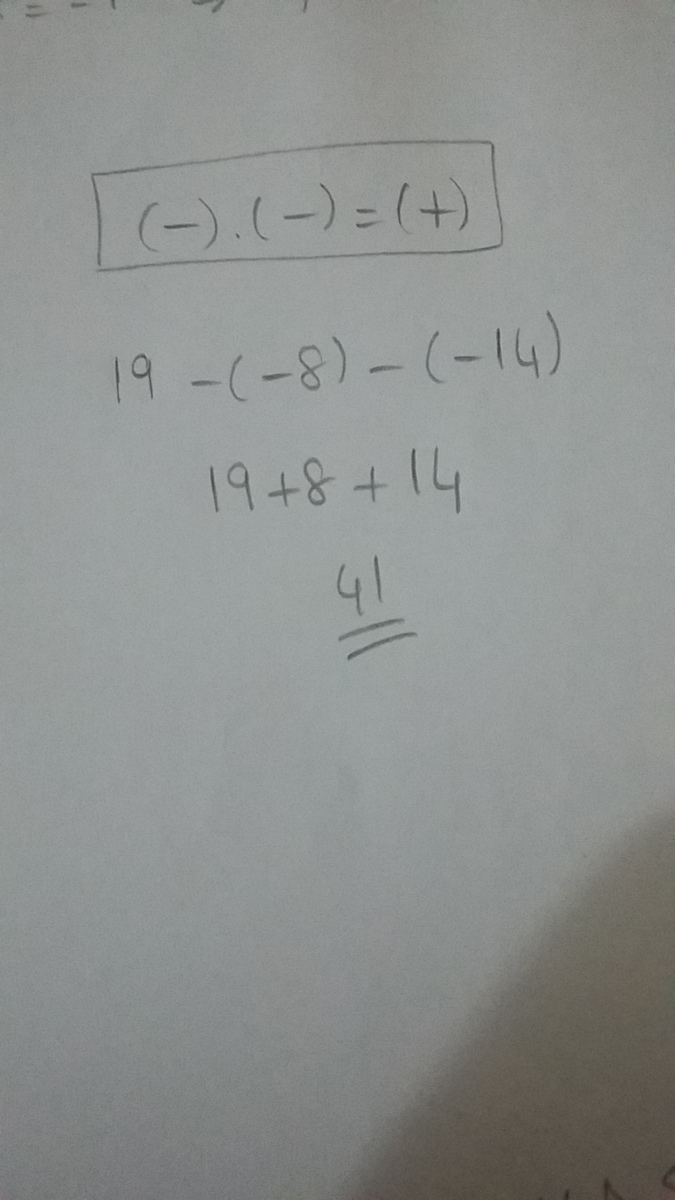 (-).(-)=(+)
19 -(-8) - (-14)
19+8+14
41